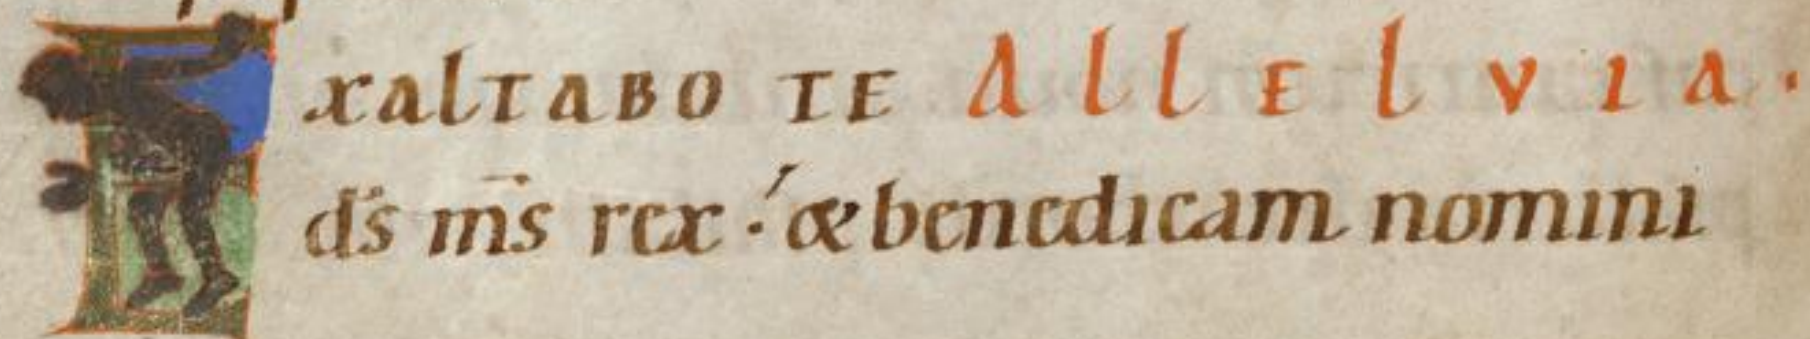 Exaltabo te Alleluia.
dѕ̄ mѕ̄ rex ·́ & benedicam nomini